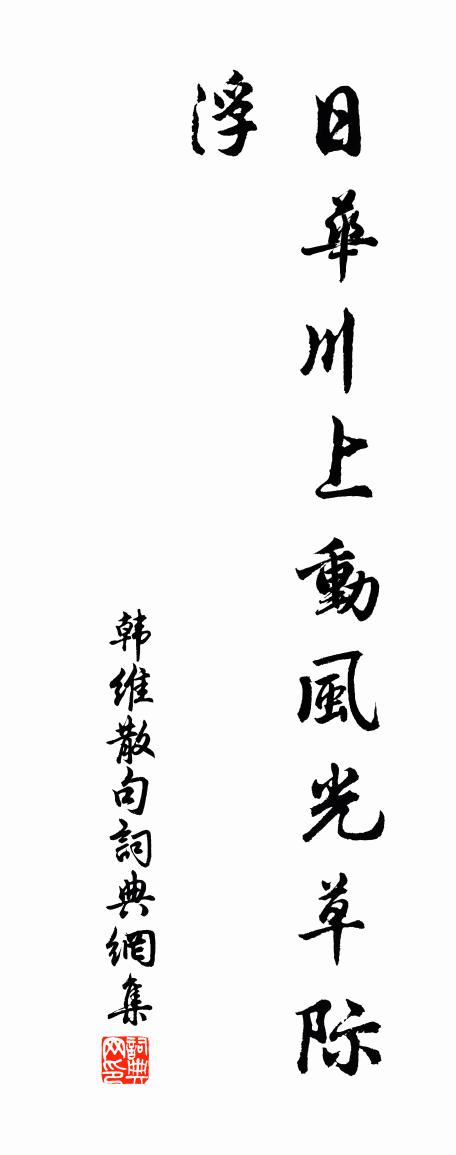 日華川上動風光草际
浮
韩維散句詞典網集
詞典网印